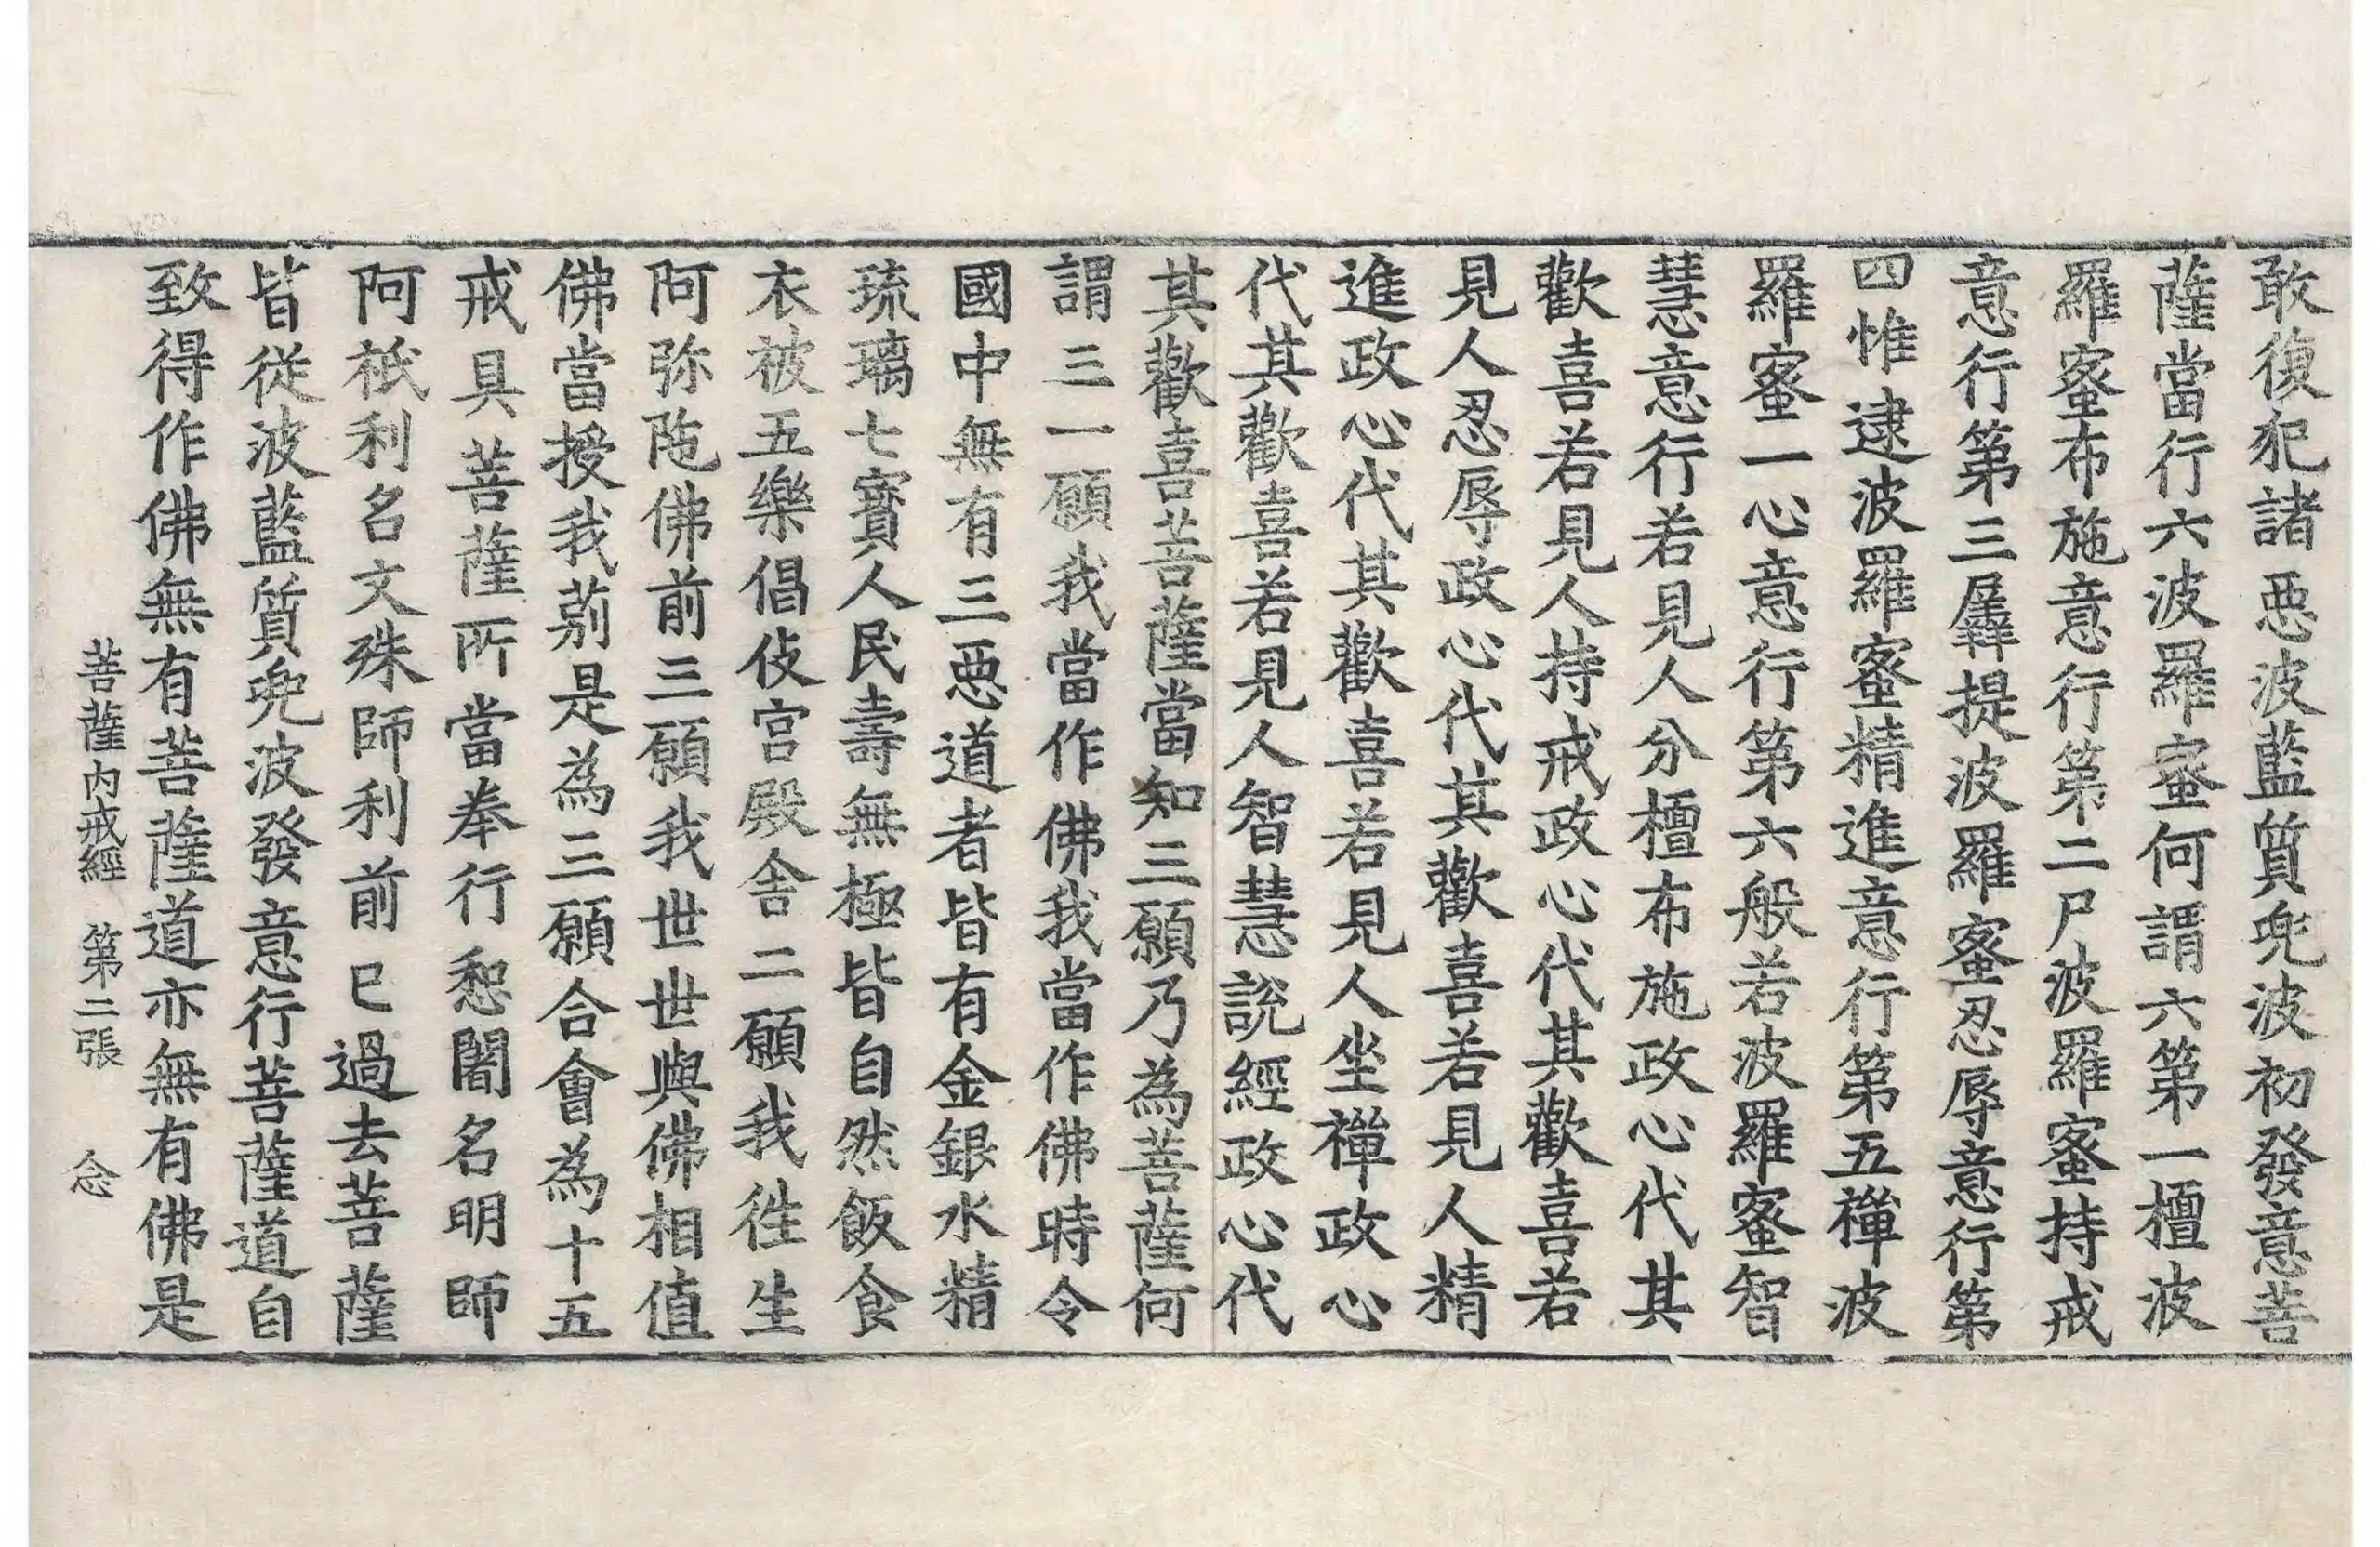 敢復犯諸惡波藍質兜波初發意菩
薩當行六波羅蜜何謂六第一檀波
羅蜜布施意行第二尸波羅蜜持戒
意行第三羼提波羅蜜忍辱意行第
四惟逮波羅蜜精進意行第五禪波
羅蜜一心意行第六般若波羅蜜智
慧意行若見人分檀布施政心代其
歡喜若見人持戒政心代其歡喜若
見人忍辱政心代其歡喜若見人精
進政心代其歡喜若見人坐禪政心
代其歡喜若見人智慧說經政心代
其歡喜菩薩當知三願乃為菩薩何
謂三一願我當作佛我當作佛時令
國中無有三惡道者皆有金銀水精
琉璃七寶人民壽無極皆自然飯食
衣被五樂倡伎宮殿舍二願我徃生
阿弥陁佛前三願我世世與佛相值
佛當授我莂是為三願合會為十五
戒具菩薩所當奉行惒闍名明師
阿祇利名文殊師利前已過去菩薩
皆從波藍質兜波發意行菩薩道自
致得作佛無有菩薩道亦無有佛是
菩薩內戒經 第二張 念